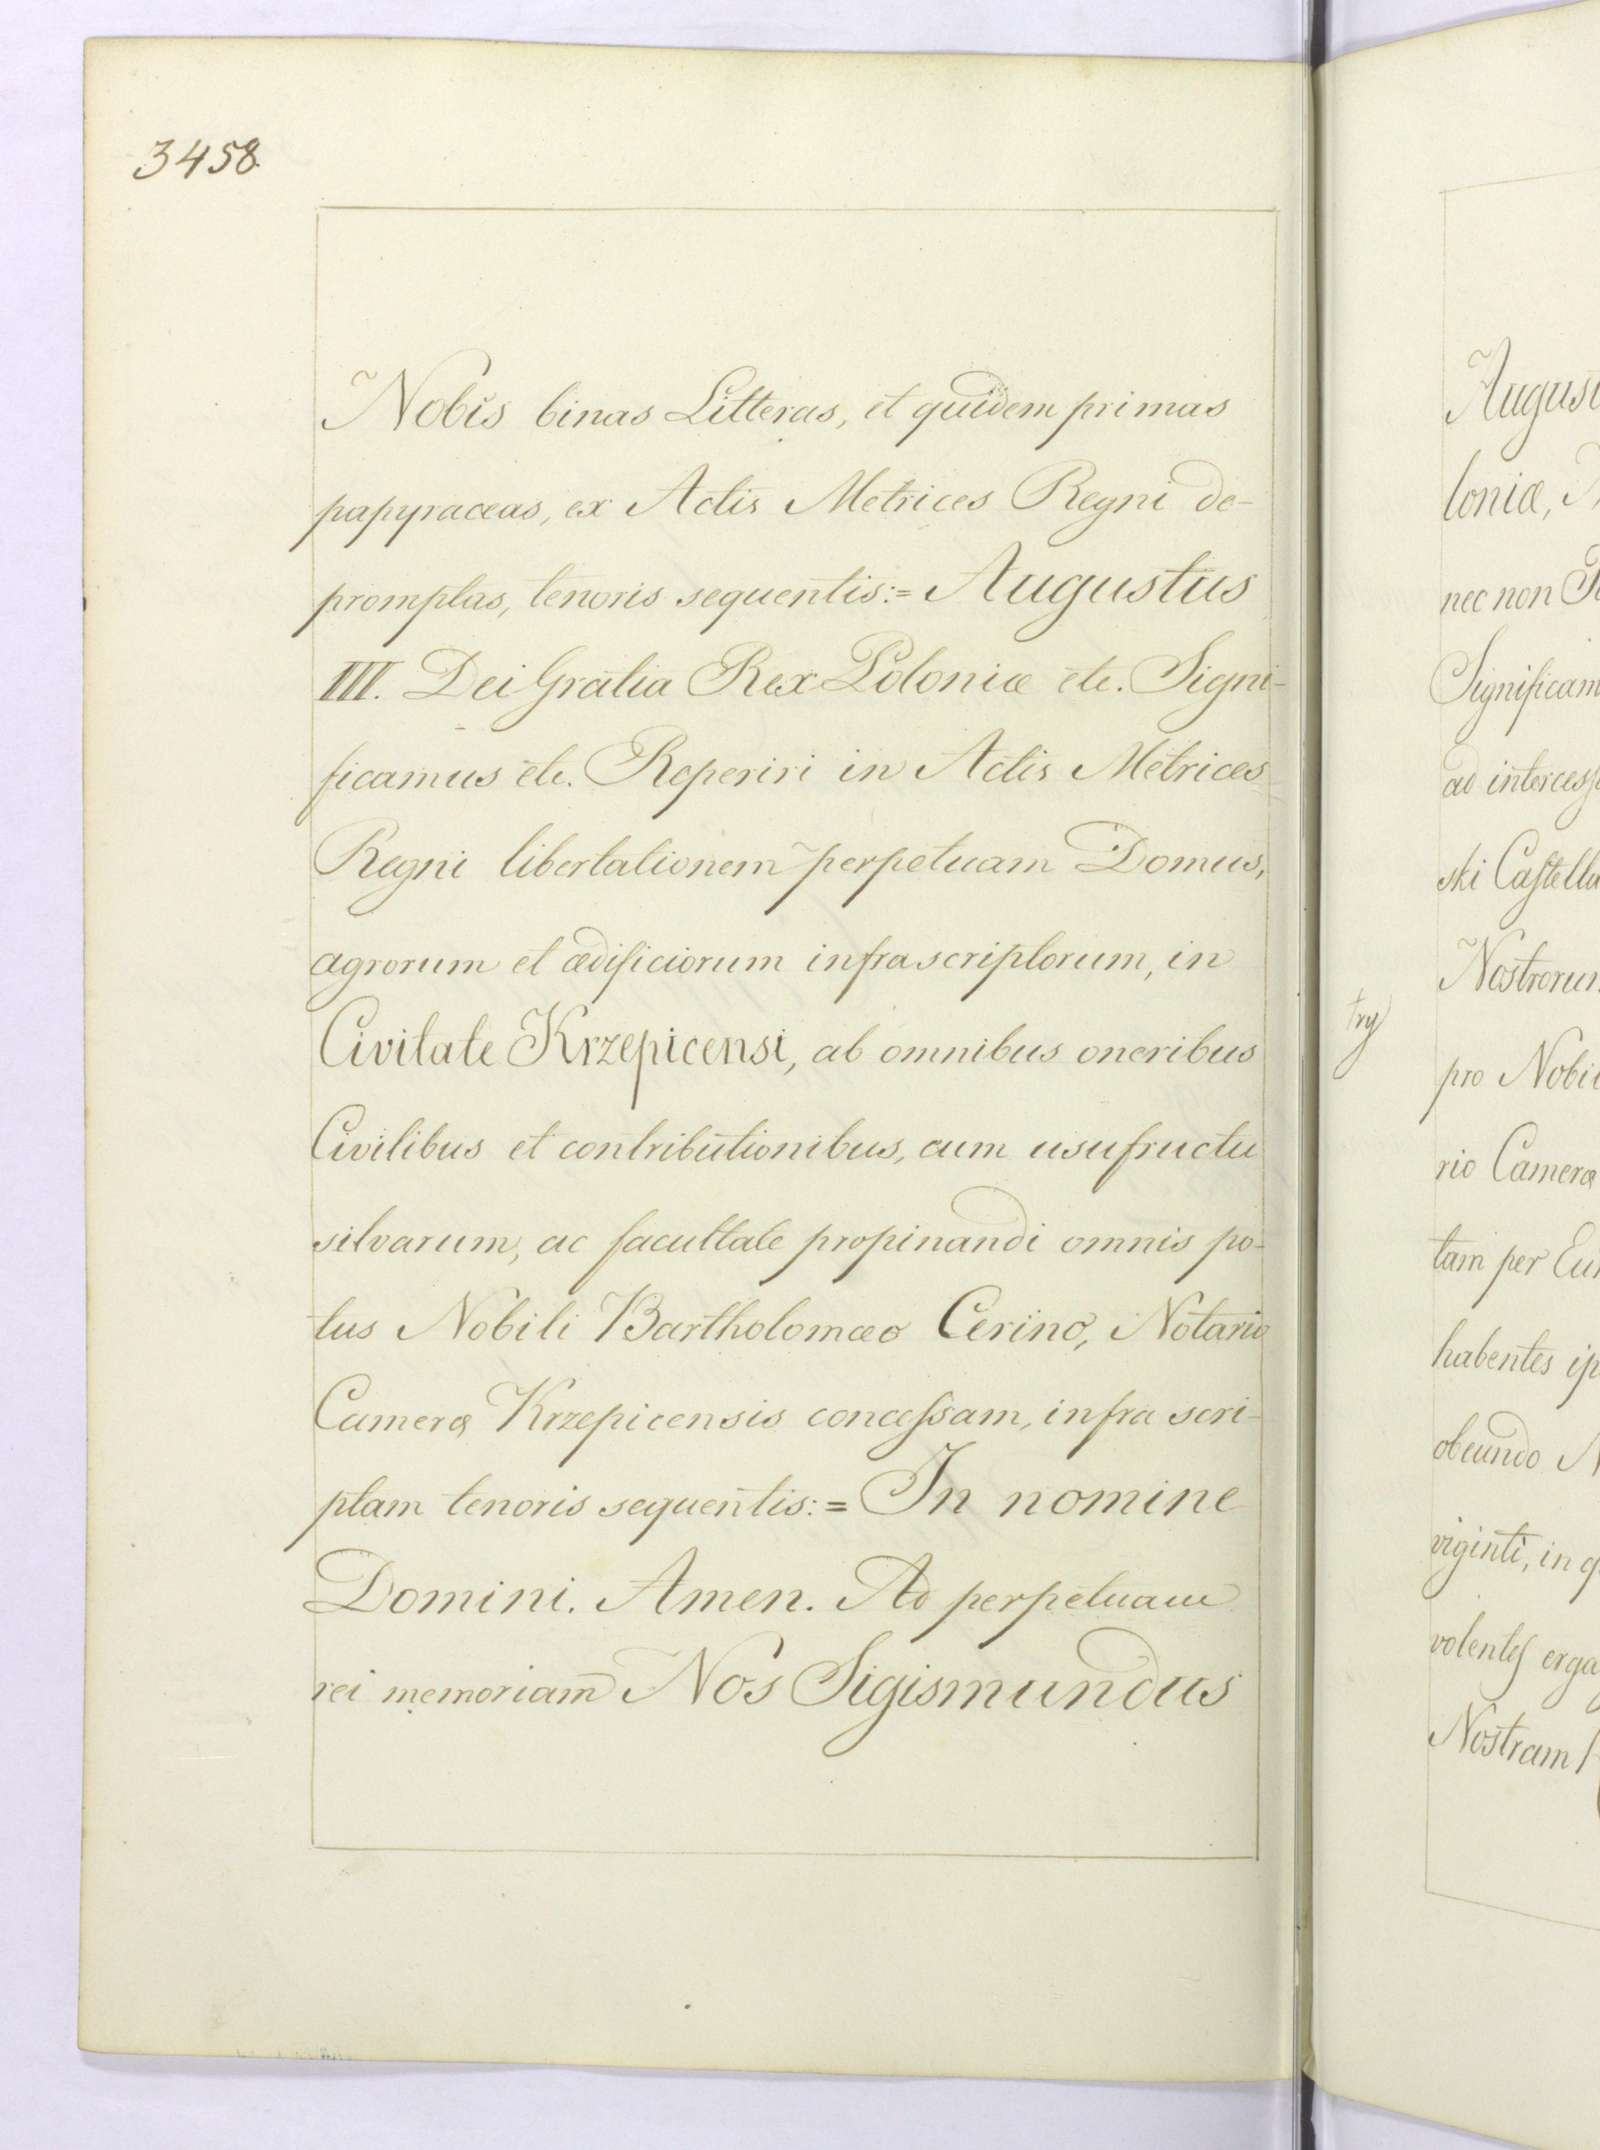 3458.
Nobis binas Litteras, et quidem primas
papyraceas, ex Actis Metrices Regni de-
promptas, tenoris sequentis:= Augustus
III. Dei Gratia Rex Poloniæ etc. Signi-
ficamus etc. Reperiri in Actis Metrices
Regni libertationem perpetuam Domus,
agrorum et ædificiorum infrascriptorum, in
Civitate Krzepicensi, ab omnibus oneribus
Civilibus et contributionibus, cum usufructu
silvarum, ac facultate propinandi omnis po-
tus Nobili Bartholomæo Cerino, Notario
Cameræ Krzepicensis concessam, infra scri-
ptam tenoris sequentis:= In nomine
Domini. Amen. Ad perpetuam
rei memoriam Nos Sigismundus
try
August
loniæ,
nec non
Significam
ad intercess
ski Castella
Nostrorum
pro Nobil
rio Cameræ
tam per Eun
habentes ip
obeundo N
viginti, in q
volentes erga
Nostram